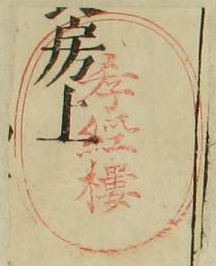 房上
孝經樓